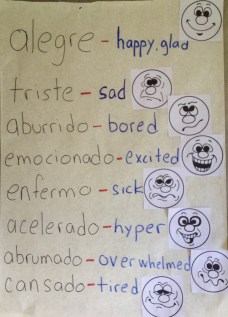 alegre - happy, glad
triste - sad
aburrido - bored
emocionado - excited
enfermo - sick
acelerado - hyper
abrumado - overwhelmed
cansado - tired